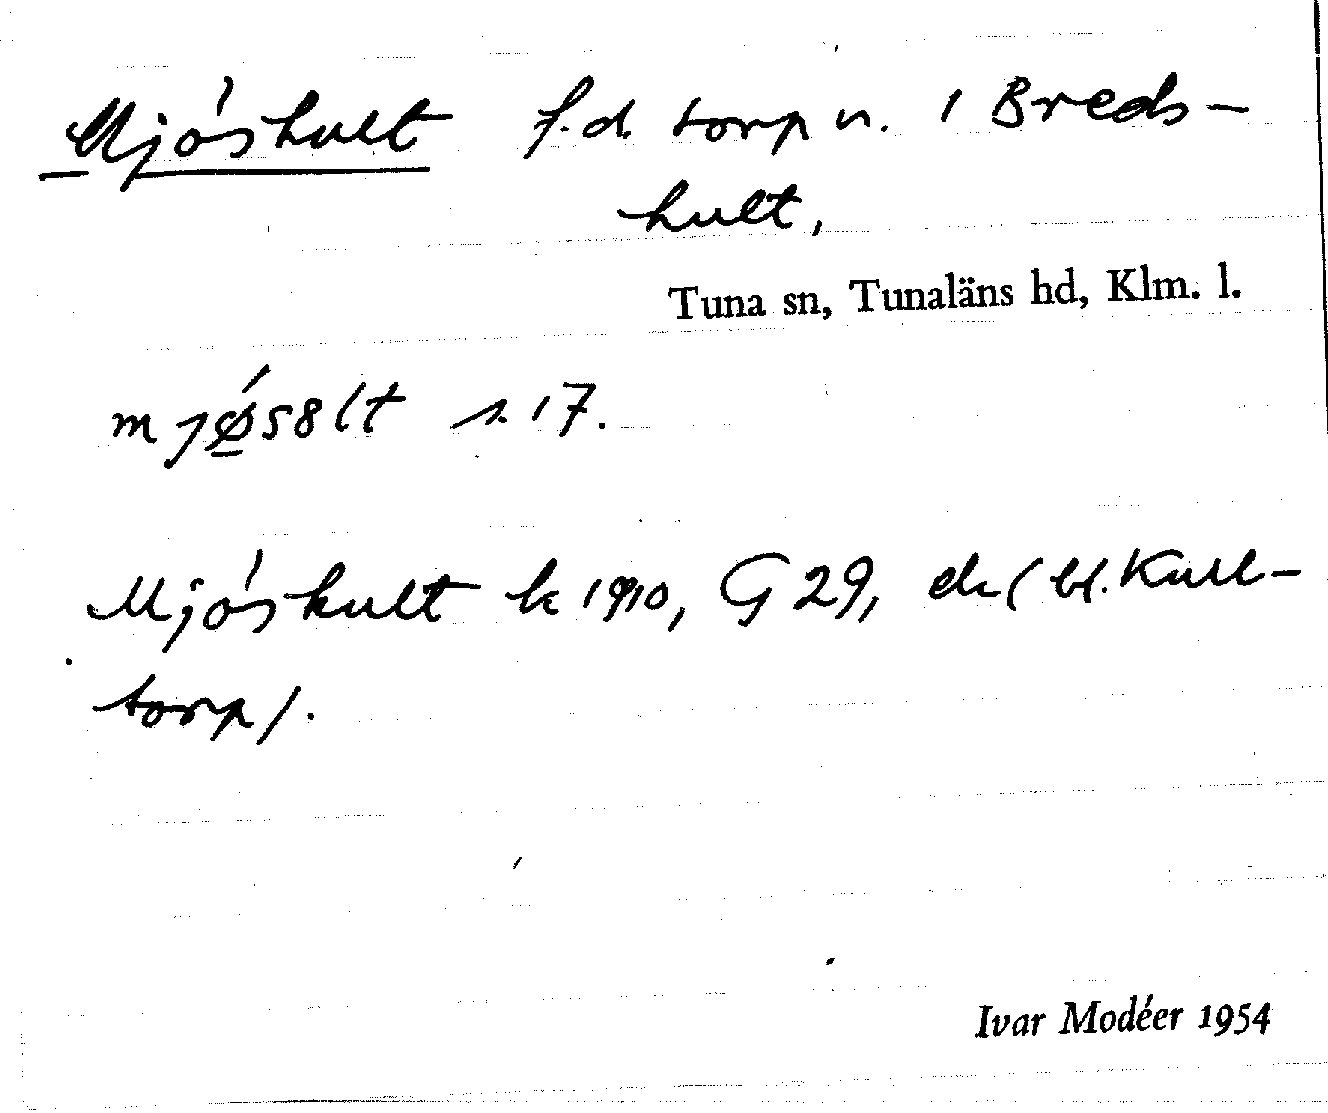 Mjöshult f.d. torp u. 1 Breds-
hult,
Tuna sn, Tunaläns hd, Klm. l.
s. 17.
Mjöshult k 1910, G 29, ek (bl. Kull-
torp).
Ivar Modéer 1954